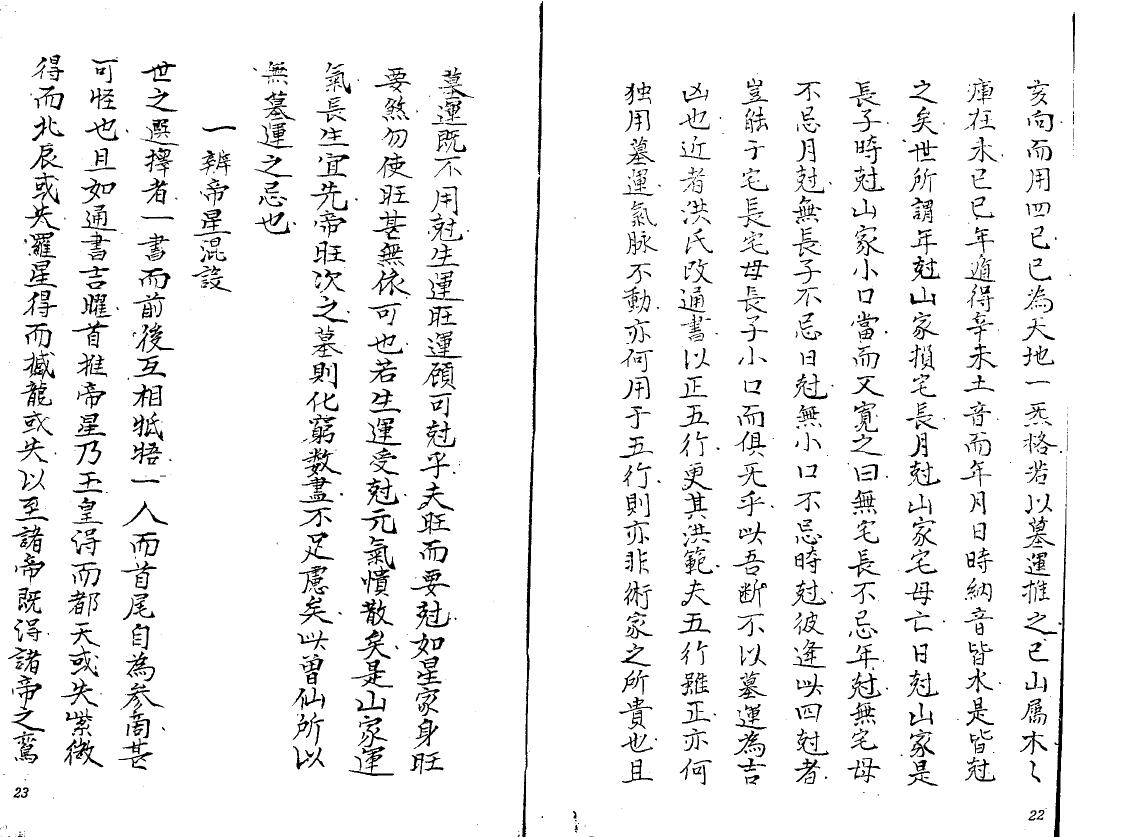 亥向而用四己巳為天地一炁格若以墓運推之巳山属木〻
庫在未己巳年遁得辛未土音而年月日時納音皆水是皆尅
之矣世所謂年尅山家損宅長月尅山家宅母亡日尅山家是
長子時尅山家小口當而又寬之曰無宅長不忌年尅無宅母
不忌月尅無長子不忌日尅無小口不忌時尅彼逢此四尅者
豈能于宅長宅母長子小口而俱无乎以吾断不以墓運為吉
凶也近者洪氏改通書以正五行更其洪範夫五行雖正亦何
独用墓運氣脉不動亦何用于五行則亦非術家之所貴也且
22
墓運既不用尅生運旺運顧可尅乎夫旺而要尅如星家身旺
要煞勿使旺甚無依可也若生運受尅元氣憤散矣是山家運
氣長生宜先帝旺次之墓則化窮数盡不足慮矣此曾仙所以
無墓運之忌也
一辨帝星混設
世之選擇者一書而前後互相牴牾一人而首尾自為参商甚
可怪也且如通書吉曜首推帝星乃玉皇得而都天或失紫微
得而北辰或失羅星得而撼龍或失以至諸帝既得諸帝之鸞
23